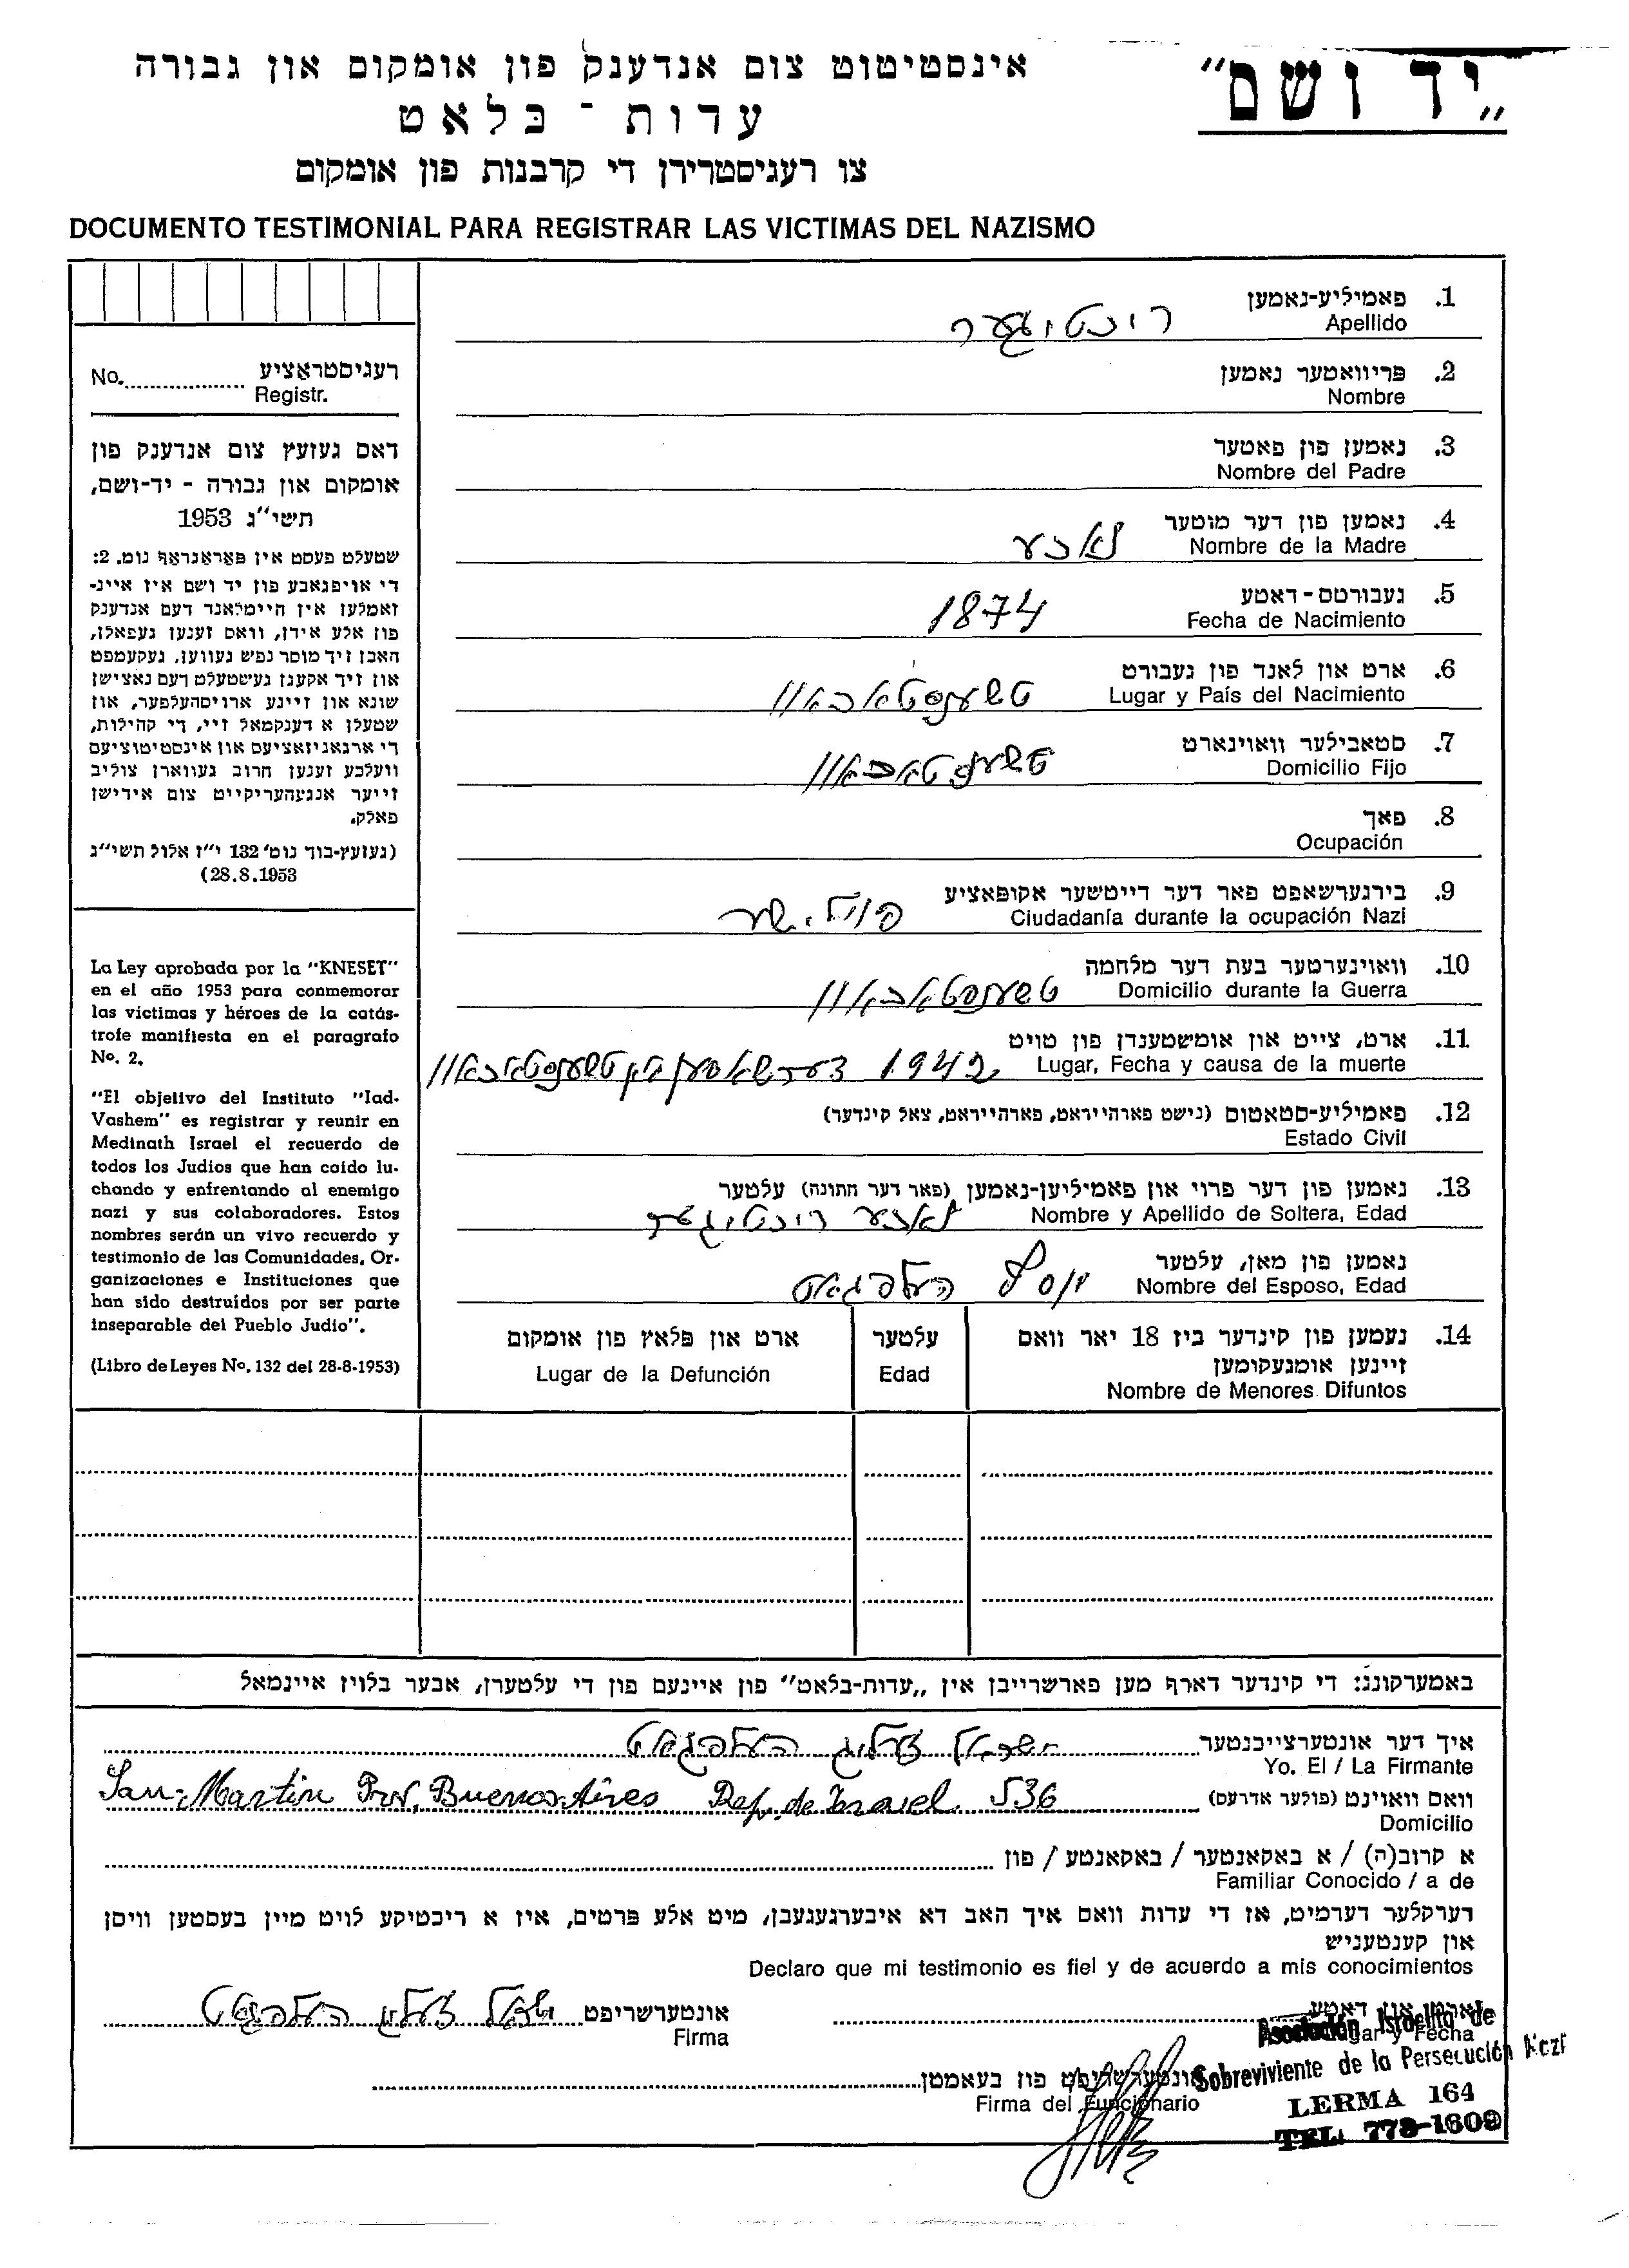 „יד ושם"
אינסטיטוט צום אנדענק פון אומקום און גבורה
עדות - בלאט
צו רעגיסטרירן די קרבנות פון אומקום
DOCUMENTO TESTIMONIAL PARA REGISTRAR LAS VICTIMAS DEL NAZISMO
רעגיסטראציע
No. Registr.
דאס געזעץ צום אנדענק פון
אומקום און גבורה - יד-ושם,
תשי"ג 1953
שטעלט פעסט אין פאראגראף נומ. 2:
די אויפגאבע פון יד ושם איז איינ-
זאמלען אין היימלאנד דעם אנדענק
פון אלע אידן, וואס זענען געפאלן,
האבן זיך מוסר נפש געווען, געקעמפט
און זיך אקעגן געשטעלט דעם נאצישן
שונא און זיינע ארויסהעלפער, און
שטעלן א דענקמאל זיי, די קהילות,
די ארגאניזאציעס און אינסטיטוציעס
וועלכע זענען חרוב געווארן צוליב
זייער אנגעהעריקייט צום אידישן
פאלק.
(געזעץ-בוך נומ' 132 י"ז אלול תשי"ג
28.8.1953)
La Ley aprobada por la "KNESET"
en el año 1953 para conmemorar
las víctimas y héroes de la catás-
trofe manifiesta en el paragrafo
No. 2.
"El objetivo del Instituto "Iad-
Vashem" es registrar y reunir en
Medinath Israel el recuerdo de
todos los Judios que han caido lu-
chando y enfrentando al enemigo
nazi y sus colaboradores. Estos
nombres serán un vivo recuerdo y
testimonio de las Comunidades, Or-
ganizaciones e Instituciones que
han sido destruidos por ser parte
inseparable del Pueblo Judio".
(Libro de Leyes No. 132 del 28-8-1953)
1. פאמיליע-נאמען
Apellido
2. פריוואטער נאמען
Nombre
3. נאמען פון פאטער
Nombre del Padre
4. נאמען פון דער מוטער
Nombre de la Madre
5. געבורטס-דאטע
Fecha de Nacimiento 1874
6. ארט און לאנד פון געבורט
Lugar y País del Nacimiento טשענסטאכאוו
7. סטאבילער וואוינארט
Domicilio Fijo טשענסטאכאוו
8. פאך
Ocupación
9. בירגערשאפט פאר דער דייטשער אקופאציע
Ciudadanía durante la ocupación Nazi פוילישע
10. וואוינערטער בעת דער מלחמה
Domicilio durante la Guerra טשענסטאכאוו
11. ארט, צייט און אומשטענדן פון טויט
Lugar, Fecha y causa de la muerte 1942 דערשאסען אין טשענסטאכאוו
12. פאמיליע-סטאטוס (נישט פארהייראט, פארהייראט, צאל קינדער)
Estado Civil
13. נאמען פון דער פרוי און פאמיליען-נאמען (פאר דער חתונה) עלטער
Nombre y Apellido de Soltera, Edad
נאמען פון מאן, עלטער
Nombre del Esposo, Edad יוסף העלפגאט
14. נעמען פון קינדער ביז 18 יאר וואס
זיינען אומגעקומען
Nombre de Menores Difuntos
עלטער
Edad
ארט און פלאץ פון אומקום
Lugar de la Defunción
באמערקונג: די קינדער דארף מען פארשרייבן אין „עדות-בלאט" פון איינעם פון די עלטערן, אבער בלויז איינמאל
איך דער אונטערצייכנטער ישראל זעליג העלפגאט
Yo. El / La Firmante
וואס וואוינט (פולער אדרעס) San Martin Prov. Buenos Aires Rep. de Israel 536
Domicilio
א קרוב(ה) / א באקאנטער / באקאנטע / פון
Familiar Conocido / a de
דערקלער דערמיט, אז די עדות וואס איך האב דא איבערגעגעבן, מיט אלע פרטים, איז א ריכטיקע לויט מיין בעסטען וויסן
און קענטעניש
Declaro que mi testimonio es fiel y de acuerdo a mis conocimientos
ארט און דאטע
Lugar y Fecha
אונטערשריפט ישראל זעליג העלפגאט
Firma
אונטערשריפט פון באאמטן
Firma del Funcionario
Asociación Israelita de
Sobreviviente de la Persecución Nazi
LERMA 164
TEL. 773-1609